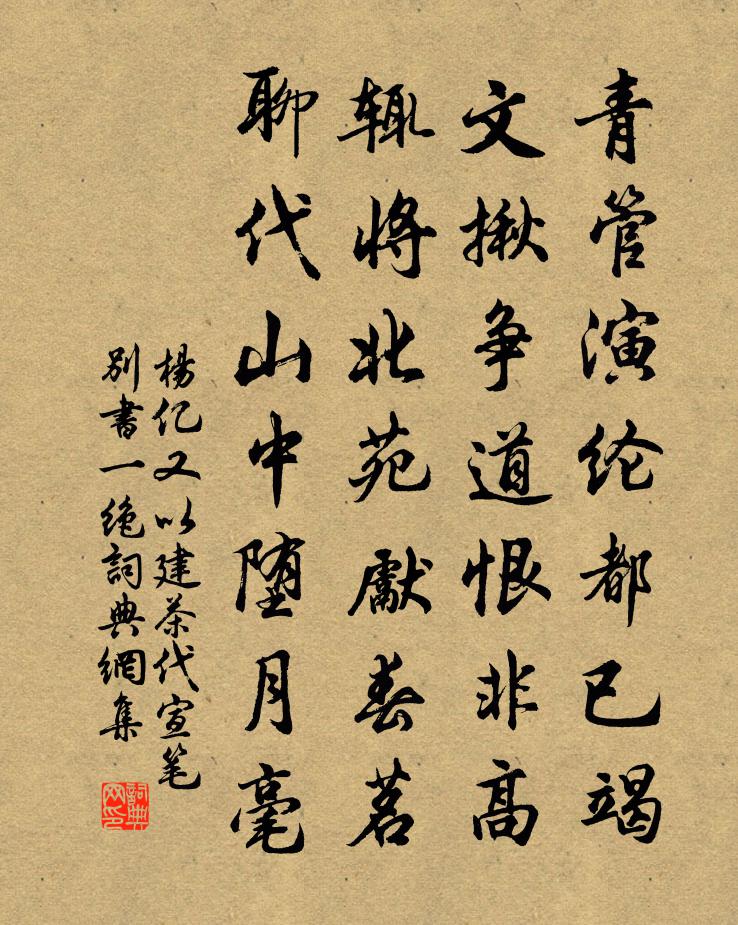 青管演纶都已竭
文揪争道恨非高
辄将北苑獻春茗
聊代山中堕月毫
楊亿又以建茶代宣笔
别書一绝詞典網集
詞典网印